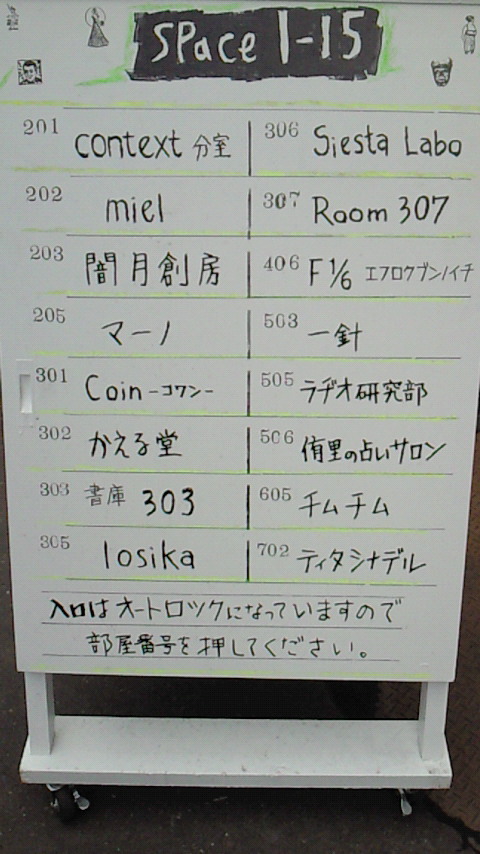 SPace 1-15
201 context 分室
202 miel
203 闇月創房
205 マーノ
301 Coin -コワン-
302 かえる堂
303 書庫 303
305 losika
306 Siesta Labo
307 Room 307
406 F1/6 エフロクブンノイチ
503 一針
505 ラヂオ研究部
506 侑里の占いサロン
605 チムチム
702 ティタシナデル
入口はオートロックになっていますので
部屋番号を押してください。